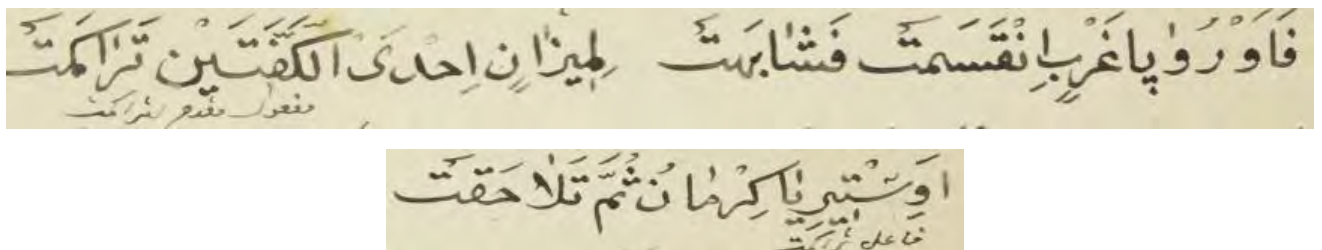 فَاَوْرُوٰپاغَرْبٍاِنْقَسَمتْ فَشٰابَهتْ لِميزٰانٍ اِحْدىَ الكَفَّتَيْنِ تَرٰاكَمتْ
مفعول مقدم لتراكمت
اوَسْتيرِيٰا كِرْمٰانُ ثُمَّ تَلاٰحَقَتْ
فاعل تراكمت